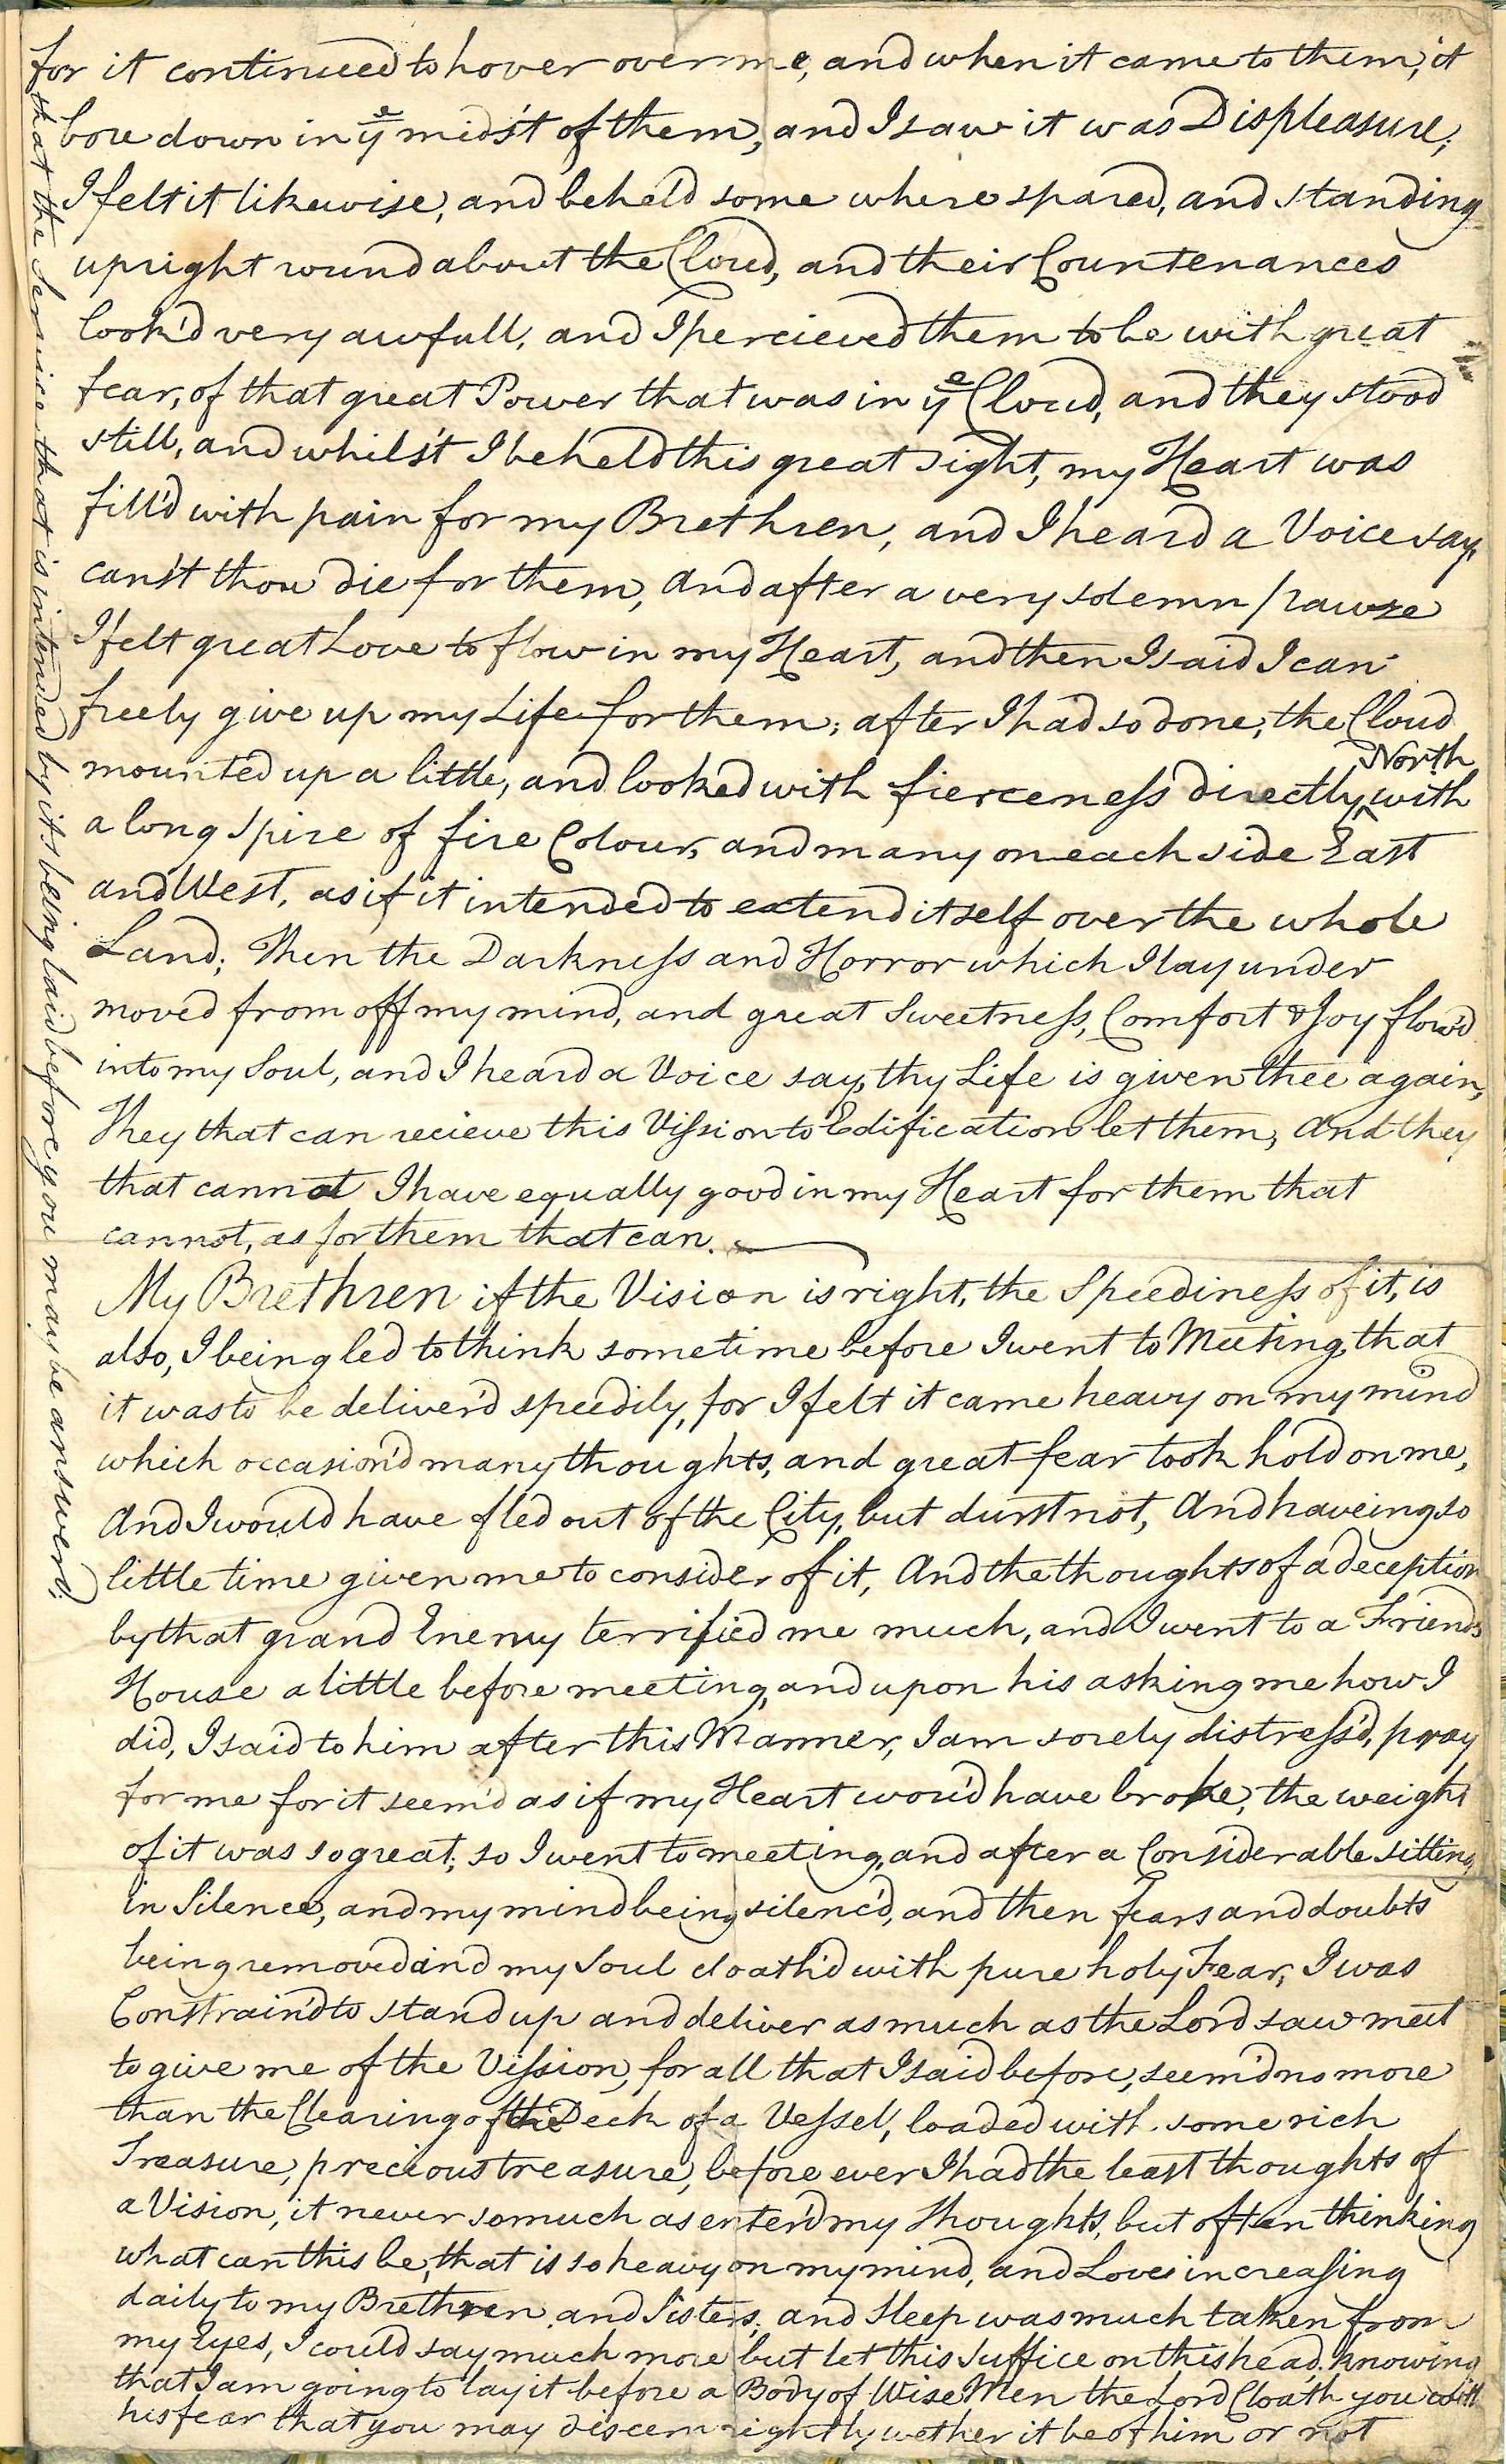 for it continued to hover over me, and when it came to them, it
bore down in yᵉ mids't of them, and I saw it was Displeasure,
I felt it likewise, and beheld some where spared, and standing
upright round about the Cloud, and their Countenances
look'd very awfull, and I percieved them to be with great
fear, of that great Power that was in yᵉ Cloud, and they stood
still, and whils't I beheld this great sight, my Heart was
fill'd with pain for my Brethren, and I heard a Voice say,
can'st thou die for them, And after a very solemn pawse
I felt great Love to flow in my Heart, and then I said I can
freely give up my Life for them; after I had so done, the Cloud
mounted up a little, and looked with fierceness directly North with
a long spire of fire Colour, and many on each side East
and West, as if it intended to extend itself over the whole
Land; Then the Darkness and Horror which I lay under
moved from off my mind, and great Sweetness, Comfort & Joy flow'd
into my Soul, and I heard a Voice say, thy Life is given thee again,
They that can recieve this Vission to Edification let them, And they
that cannot I have equally good in my Heart for them that
cannot, as for them that can.
My Brethren if the Vision is right, the Speediness of it, is
also, I being led to think sometime before I went to Meeting, that
it was to be deliver'd speedily, for I felt it came heavy on my mind
which occasion'd many thoughts, and great fear took hold on me,
And I would have fled out of the City, but durst not, And haveing so
little time given me to consider of it, And the thoughts of a deception
by that grand Enemy terrified me much, and I went to a Friends
House a little before meeting, and upon his asking me how I
did, I said to him after this Manner, I am sorely distress'd, pray
for me for it seem'd as if my Heart wou'd have broke, the weight
of it was so great; so I went to meeting, and after a Considerable sitting
in Silence, and my mind being silenc'd, and then fears and doubts
being removed and my Soul cloath'd with pure holy Fear, I was
Constrain'd to stand up and deliver as much as the Lord saw meet
to give me of the Vission, for all that I said before, seem'd no more
than the Clearing of the Deck of a Vessel, loaded with some rich
Treasure, precious treasure, before ever I had the least thoughts of
a Vision, it never so much as enter'd my thoughts, but often thinking
what can this be, that is so heavy on my mind, and Love increasing
daily to my Brethren and Sisters, and Sleep was much taken from
my Eyes, I could say much more but let this Suffice on this head. knowing
that I am going to lay it before a Body of Wise Men the Lord Cloath you with
his fear that you may discern rightly wether it be of him or not
that the Service that is intended by its being laid before you may be answerd;